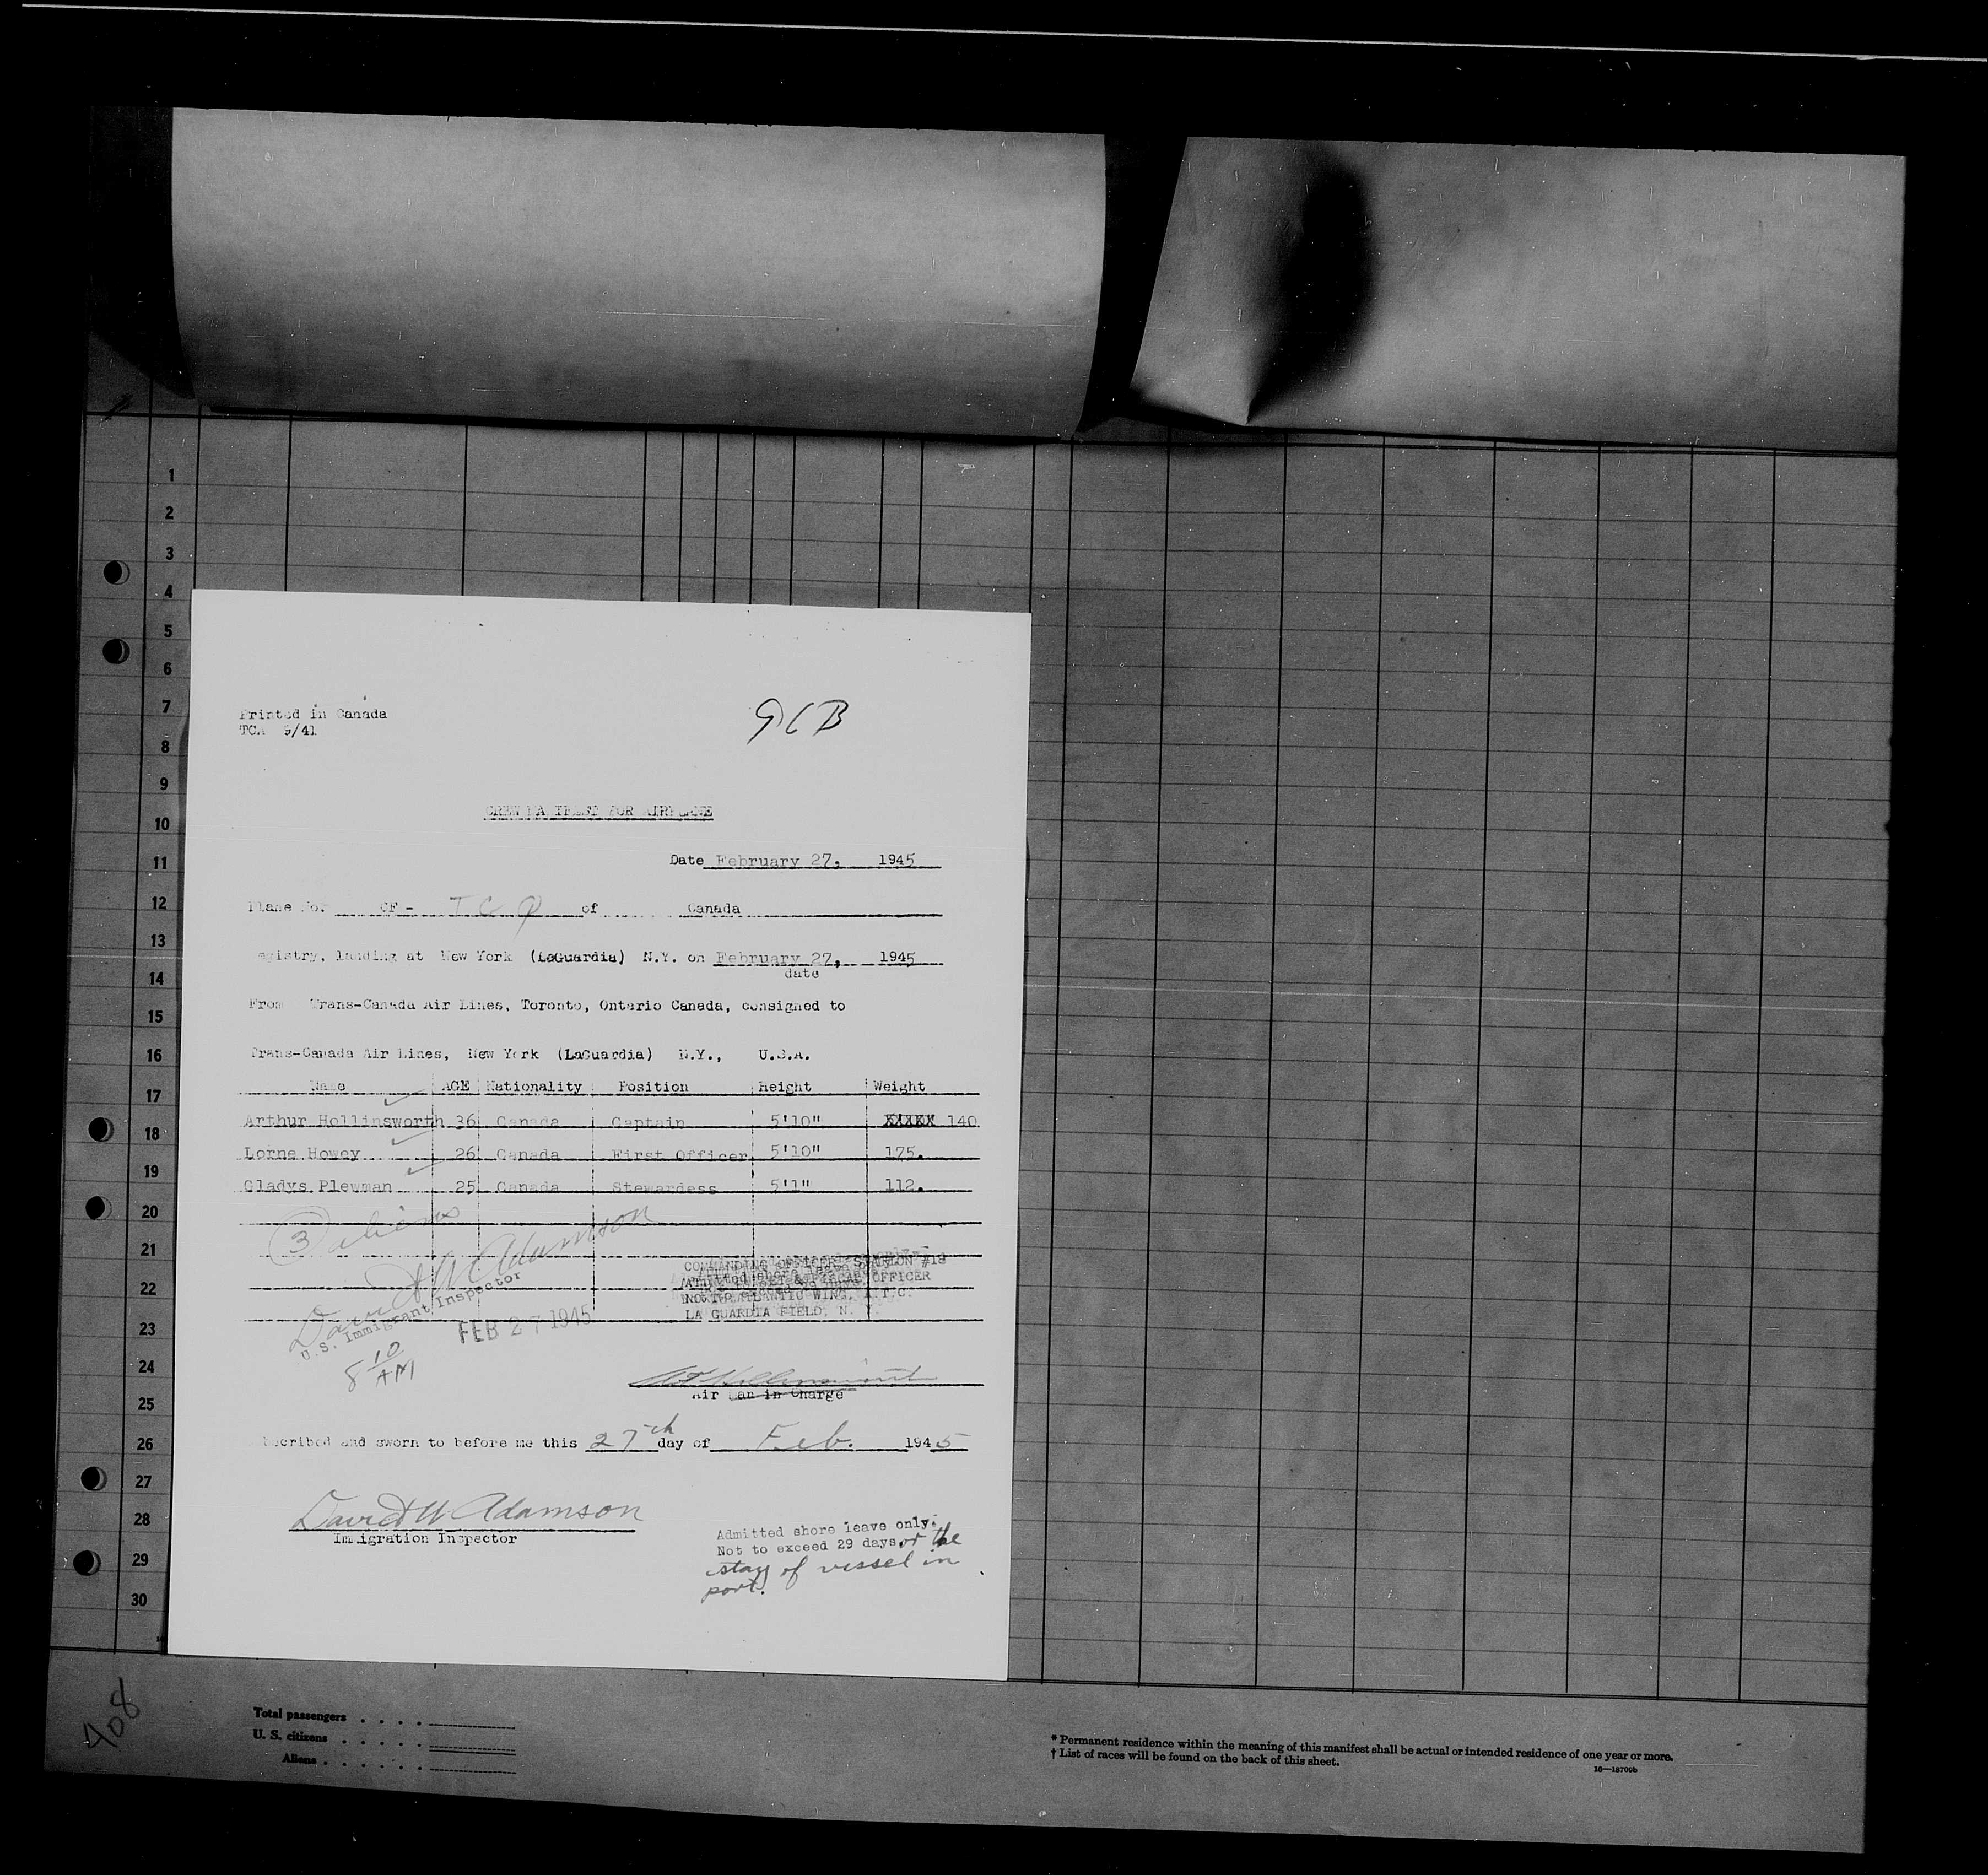 1
2
3
4
5
6
7
8
9
10
11
12
13
14
15
16
17
18
19
20
21
22
23
24
25
26
27
28
29
30
Printed in Canada
TCA 9/41
CREW MANIFEST FOR AIRPLANE
Date February 27, 1945
Plane No. CF - T C Q of Canada
egistry, landing at New York (LaGuardia) N.Y. on February 27, 1945
date
From Trans-Canada Air Lines, Toronto, Ontario Canada, consigned to
Trans-Canada Air Lines, New York (LaGuardia) N.Y., U.S.A.
Name AGE Nationality Position Height Weight
Arthur Hollinsworth 36 Canada Captain 5'10" XXXXX 140
Lorne Howey 26 Canada First Officer 5'10" 175.
Gladys Plewman 25 Canada Stewardess 5'1" 112.
3 aliens
David W Adamson
U.S. Immigrant Inspector
FEB 27 1945
8 10 AM
COMMANDING OFFICER, STARLON #18
OFFICER
NORTH ATLANTIC WING, A.T.C.
LA GUARDIA FIELD, N. Y.
Air Man in Charge
bscribed and sworn to before me this 27th day of Feb. 1945
David W Adamson
Immigration Inspector
Admitted shore leave only.
Not to exceed 29 days or the
stay of vessel in
port.
408
Total passengers . . . .
U. S. citizens . . . . .
Aliens . . . . . .
* Permanent residence within the meaning of this manifest shall be actual or intended residence of one year or more.
† List of races will be found on the back of this sheet.
16—18709b